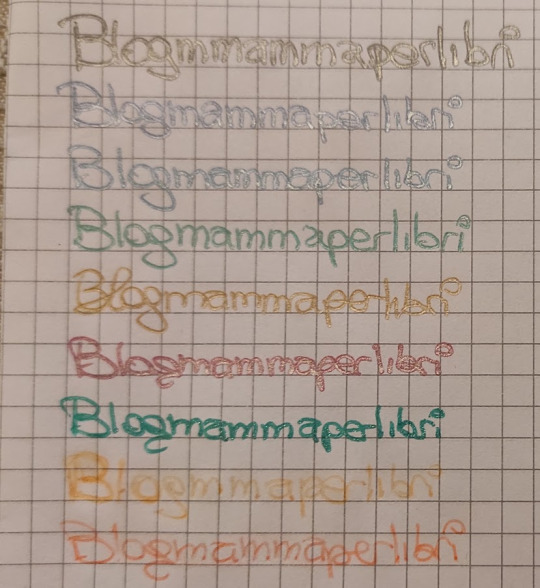 Blogmmammaperlibri
Blogmammaperlibri
Blogmammaperlibri
Blogmammaperlibri
Blogmammaperlibri
Blogmammaperlibri
Blogmammaperlibri
Blogmmaperlibri
Blogmammaperlibri